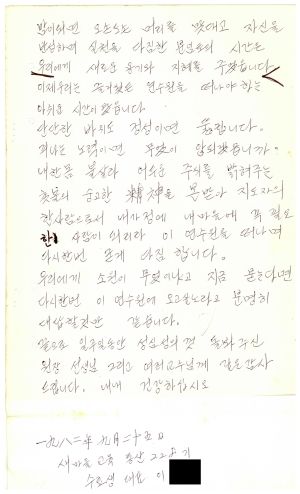 밤이되면 오손도손 머리를 맞대고 자신을
반성하며 실천을 다짐한 분임토의 시간은
우리에게 새로운 용기와 지혜를 주었읍니다
이제우리는 즐거웠든 연수원을 떠나야 하는
아쉬운 시간이 왔읍니다
단단한 바위도 정성이면 뚫립니다.
피나는 노력이면 무엇이 안되겠읍니까.
내한몸 불살라 어두운 주위를 밝혀주는
촛불의 순고한 精神을 본받아 지도자의
참사람으로서 내가정에 내마을에 꼭 필요
한 사람이 되리라 이 연수원을 떠나며
다시한번 굳게 다짐 합니다.
우리에게 소원이 무엇이냐고 지금 묻는다면
다시한번 이 연수원에 오고싶노라고 분명히
대답할것만 같읍니다.
끝으로 일주일동안 성심성의것 돌봐주신
원장 선생님 그리고 여러교수님께 깊은감사
드립니다. 내내 건강하십시요
一九八二年 九月 二十五日
새마을 교육 22기
수료생 대표 이